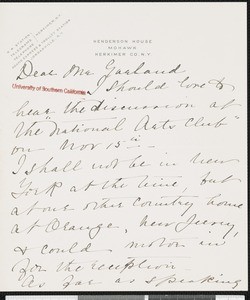 HENDERSON HOUSE
MOHAWK
HERKIMER CO. N.Y.
Dear Mr Garland
University of Southern California
I should love to
hear the discussion at
the "National Arts Club"
on Nov 15th.
I shall not be in New
York at the time, but
at our other country home
at Orange, New Jersey,
& could motor in
for the reception.
As far as speaking